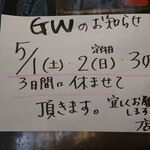 GWのお知らせ
定休日
5/1(土)・2(日)・3(
3日間は休ませて
頂きます。宜しくお願
します
店